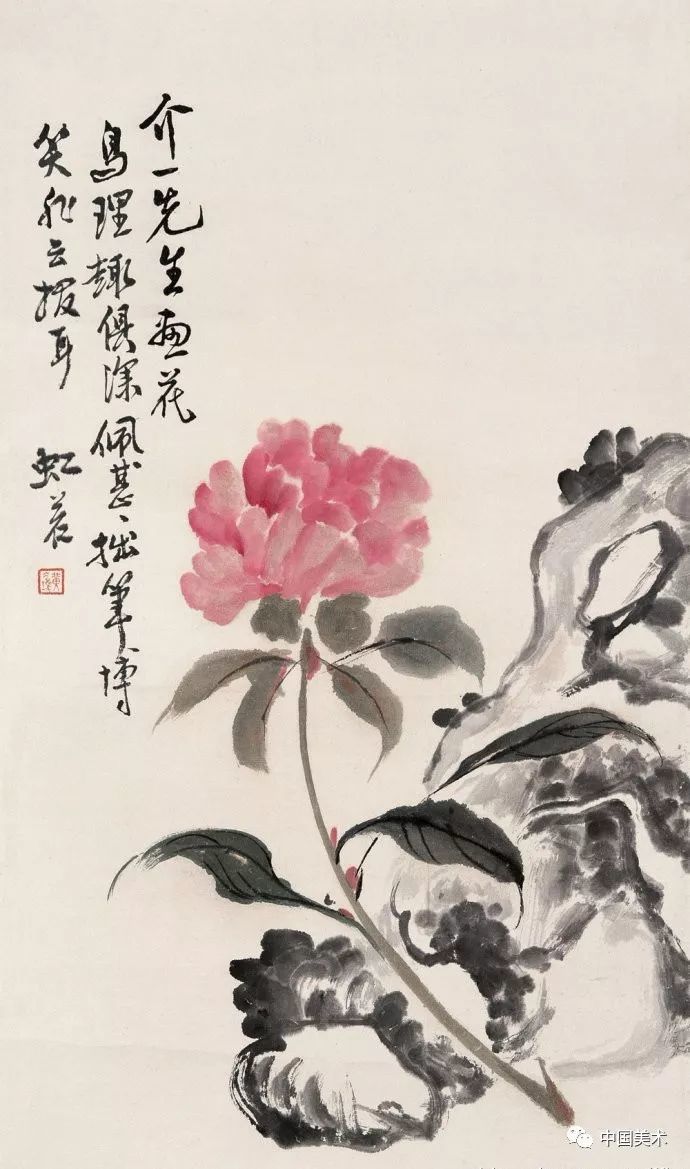 介一先生画花
鸟理趣俱深佩甚、拙笔博
笑非云报耳
虹若
中国美术